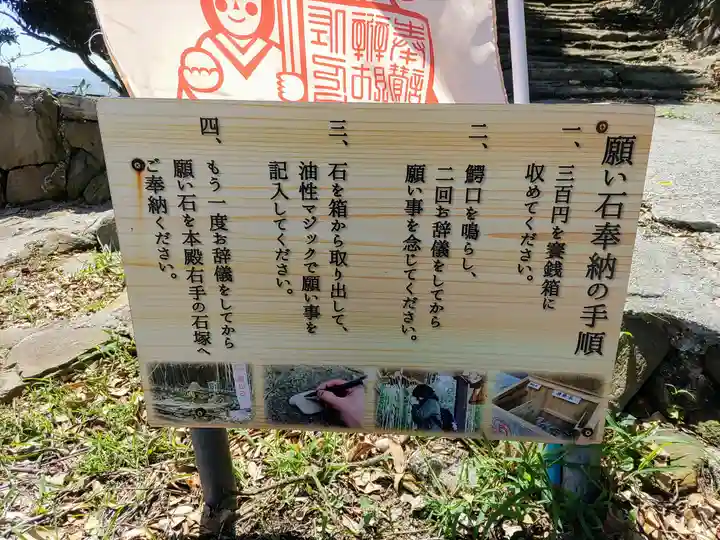 願い石奉納の手順
一、三百円を賽銭箱に
収めてください。
二、鰐口を鳴らし、
二回お辞儀をしてから
願い事を念じてください。
三、石を箱から取り出して、
油性マジックで願い事を
記入してください。
四、もう一度お辞儀をしてから
願い石を本殿右手の石塚へ
ご奉納ください。